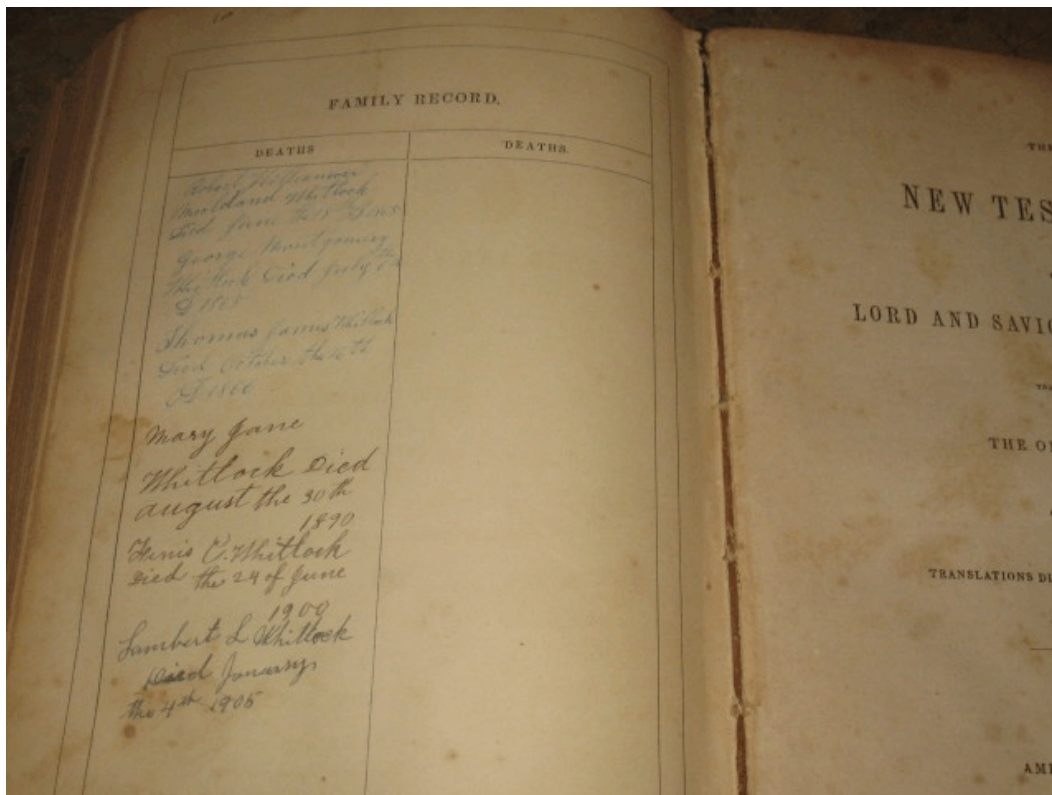 FAMILY RECORD.
DEATHS
DEATHS.
Robert
Whitlock
Died June
George Montgomery
Whitlock Died July
D 1865
Thomas James Whitlock
Died October the 16th
Mary Jane
Whitlock Died
august the 30th
1890
C. Whitlock
Died the 24 of June
1900
Lambert L Whitlock
Died January
the 4th 1905
THE
NEW TES
LORD AND SAVIO
THE O
TRANSLATIONS DI
AM